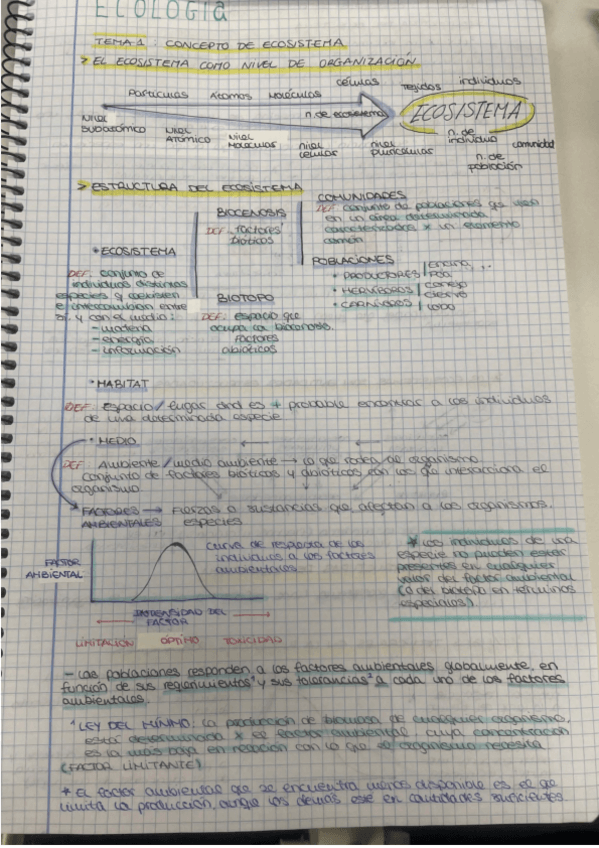 ECOLOGIA
TEMA 1: CONCEPTO DE ECOSISTEMA
> EL ECOSISTEMA COMO NIVEL DE ORGANIZACIÓN
Partículas Átomos Moléculas células tejidos individuos
n. de ecosistema ECOSISTEMA
Nivel subatómico Nivel Atómico Nivel Moléculas nivel células nivel pluricelulas n. de individuo n. de población comunidad
> ESTRUCTURA DEL ECOSISTEMA
COMUNIDADES
DEF. conjunto de poblaciones que viven
en un área determinada
caracterizadas x un elemento
común
BIOCENOSIS
DEF. factores
bióticos
POBLACIONES
• PRODUCTORES encina,...
• HERVÍBOROS conejo
ciervo
• CARNÍVOROS lobo
• ECOSISTEMA
DEF. conjunto de
individuos distintas
especies q coexisten
e intercambian entre
sí y con el medio:
- materia
- energía
- información
BIOTOPO
DEF. espacio que
ocupa la biocenosis.
factores
abióticos
• HABITAT
DEF. espacio/lugar dnd es + probable encontrar a los individuos
de una determinada especie
• MEDIO
DEF Ambiente/medio ambiente → lo que rodea al organismo
conjunto de factores bióticos y abióticos con los que interacciona el
organismo.
* FACTORES AMBIENTALES → Fuerzas o sustancias que afectan a los organismos.
especies
FACTOR
AMBIENTAL
curva de respuesta de los
individuos a los factores
ambientales
INTENSIDAD DEL
FACTOR
LIMITACIÓN ÓPTIMO TOXICIDAD
* Los individuos de una
especie no pueden estar
presentes en cualquier
valor del factor ambiental
(o del biotopo en términos
espaciales)
- Las poblaciones responden a los factores ambientales globalmente, en
función de sus requerimientos¹ y sus tolerancias² a cada uno de los factores
ambientales.
¹ LEY DEL MÍNIMO. La producción de biomasa de cualquier organismo,
está determinada x el factor ambiental, cuya concentración
es la más baja en relación con lo que el organismo necesita
(FACTOR LIMITANTE)
* El factor ambiental que se encuentra menos disponible es el que
limita la producción, aunque los demás esté en cantidades suficientes.